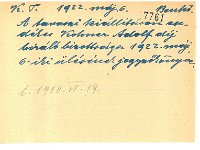 K. T. 1922. máj. 6. Benkő
7761
A tavaszi kiállításra ese-
dékes Kohner Adolf díj
bíráló bizottsága 1922. máj.
6-iki ülésének jegyzőkönyve.
l. 1918. VI. 19.